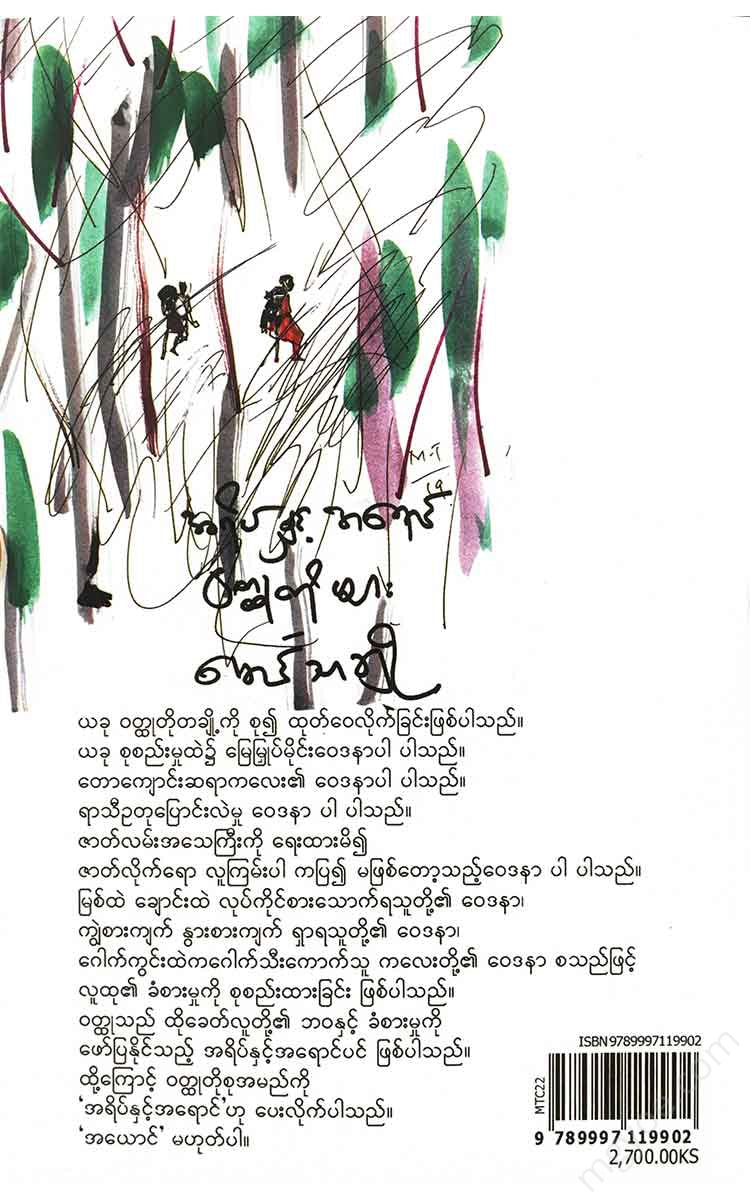 M.T
19
အရိပ်နှင့် အရောင်
ဝတ္ထုတိုများ
မောင်သာချို
ယခု ဝတ္ထုတိုတချို့ကို စု၍ ထုတ်ဝေလိုက်ခြင်းဖြစ်ပါသည်။
ယခု စုစည်းမှုထဲ၌ မြေမြှုပ်မိုင်းဝေဒနာပါ ပါသည်။
တောကျောင်းဆရာကလေး၏ ဝေဒနာပါ ပါသည်။
ရာသီဥတုပြောင်းလဲမှု ဝေဒနာ ပါ ပါသည်။
ဇာတ်လမ်းအသေကြီးကို ရေးထားမိ၍
ဇာတ်လိုက်ရော လူကြမ်းပါ ကပြ၍ မဖြစ်တော့သည့်ဝေဒနာ ပါ ပါသည်။
မြစ်ထဲ ချောင်းထဲ လုပ်ကိုင်စားသောက်ရသူတို့၏ ဝေဒနာ၊
ကျွဲစားကျက် နွားစားကျက် ရှာရသူတို့၏ ဝေဒနာ၊
ဂေါက်ကွင်းထဲကဂေါက်သီးကောက်သူ ကလေးတို့၏ ဝေဒနာ စသည်ဖြင့်
လူထု၏ ခံစားမှုကို စုစည်းထားခြင်း ဖြစ်ပါသည်။
ဝတ္ထုသည် ထိုခေတ်လူတို့၏ ဘဝနှင့် ခံစားမှုကို
ဖော်ပြနိုင်သည့် အရိပ်နှင့်အရောင်ပင် ဖြစ်ပါသည်။
ထို့ကြောင့် ဝတ္ထုတိုစုအမည်ကို
'အရိပ်နှင့်အရောင်'ဟု ပေးလိုက်ပါသည်။
'အယောင်' မဟုတ်ပါ။
ISBN9789997119902
MTC22
9 789997 119902
2,700.00KS